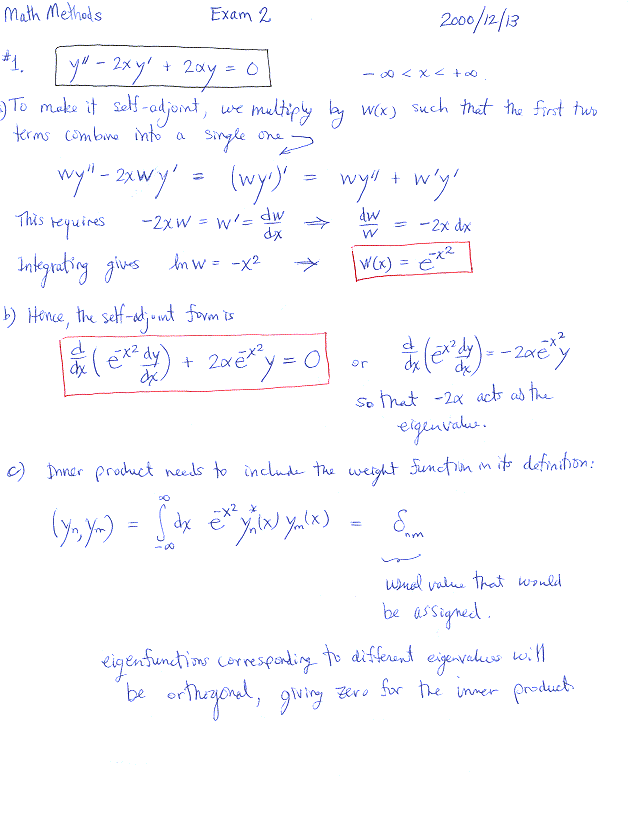 Math Methods Exam 2 2000/12/13
#1. y'' - 2xy' + 2αy = 0 -∞ < x < +∞.
a) To make it self-adjoint, we multiply by w(x) such that the first two
terms combine into a single one
wy'' - 2xwy' = (wy')' = wy'' + w'y'
This requires -2xw = w' = dw/dx ⇒ dw/w = -2x dx
Integrating gives ln w = -x² → w(x) = e^{-x²}
b) Hence, the self-adjoint form is
d/dx (e^{-x²} dy/dx) + 2αe^{-x²}y = 0 or d/dx (e^{-x²} dy/dx) = -2αe^{-x²}y
so that -2α acts as the
eigenvalue.
c) Inner product needs to include the weight function in its definition:
(yₙ, yₘ) = ∫_{-∞}^{∞} dx e^{-x²} yₙ*(x) yₘ(x) = δₙₘ
usual value that would
be assigned.
eigenfunctions corresponding to different eigenvalues will
be orthogonal, giving zero for the inner product.